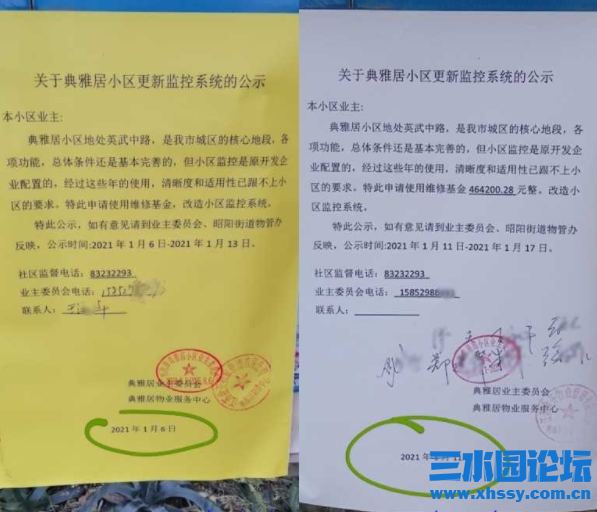 关于典雅居小区更新监控系统的公示
本小区业主:
典雅居小区地处英武中路，是我市城区的核心地段，各
项功能，总体条件还是基本完善的，但小区监控是原开发企
业配置的，经过这些年的使用，清晰度和适用性已跟不上小
区的要求。特此申请使用维修基金，改造小区监控系统。
特此公示，如有意见请到业主委员会、昭阳街道物管办
反映，公示时间:2021 年 1 月 6 日-2021 年 1 月 13 日。
社区监督电话: 83232293
业主委员会电话:
联系人:
典雅居业主委员会
典雅居物业服务中心
2021 年 1 月 6 日
关于典雅居小区更新监控系统的公示
本小区业主:
典雅居小区地处英武中路，是我市城区的核心地段，各
项功能，总体条件还是基本完善的，但小区监控是原开发企
业配置的，经过这些年的使用，清晰度和适用性已跟不上小
区的要求。特此申请使用维修基金 464200.28 元整。改造小
区监控系统。
特此公示，如有意见请到业主委员会、昭阳街道物管办
反映，公示时间:2021 年 1 月 11 日-2021 年 1 月 17 日。
社区监督电话: 83232293
业主委员会电话: 15852986
联系人:
典雅居业主委员会
典雅居物业服务中心
2021 年
三水园论坛
www.xhssy.com.cn